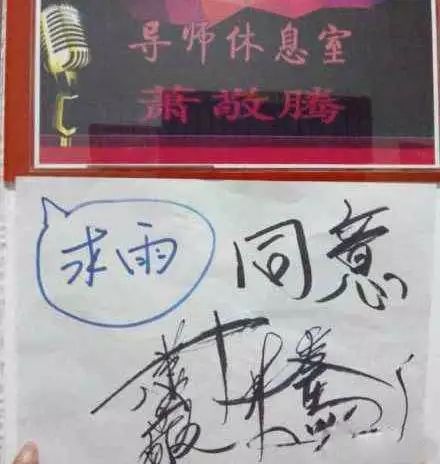 导师休息室
萧敬腾
求雨 同意
萧敬腾